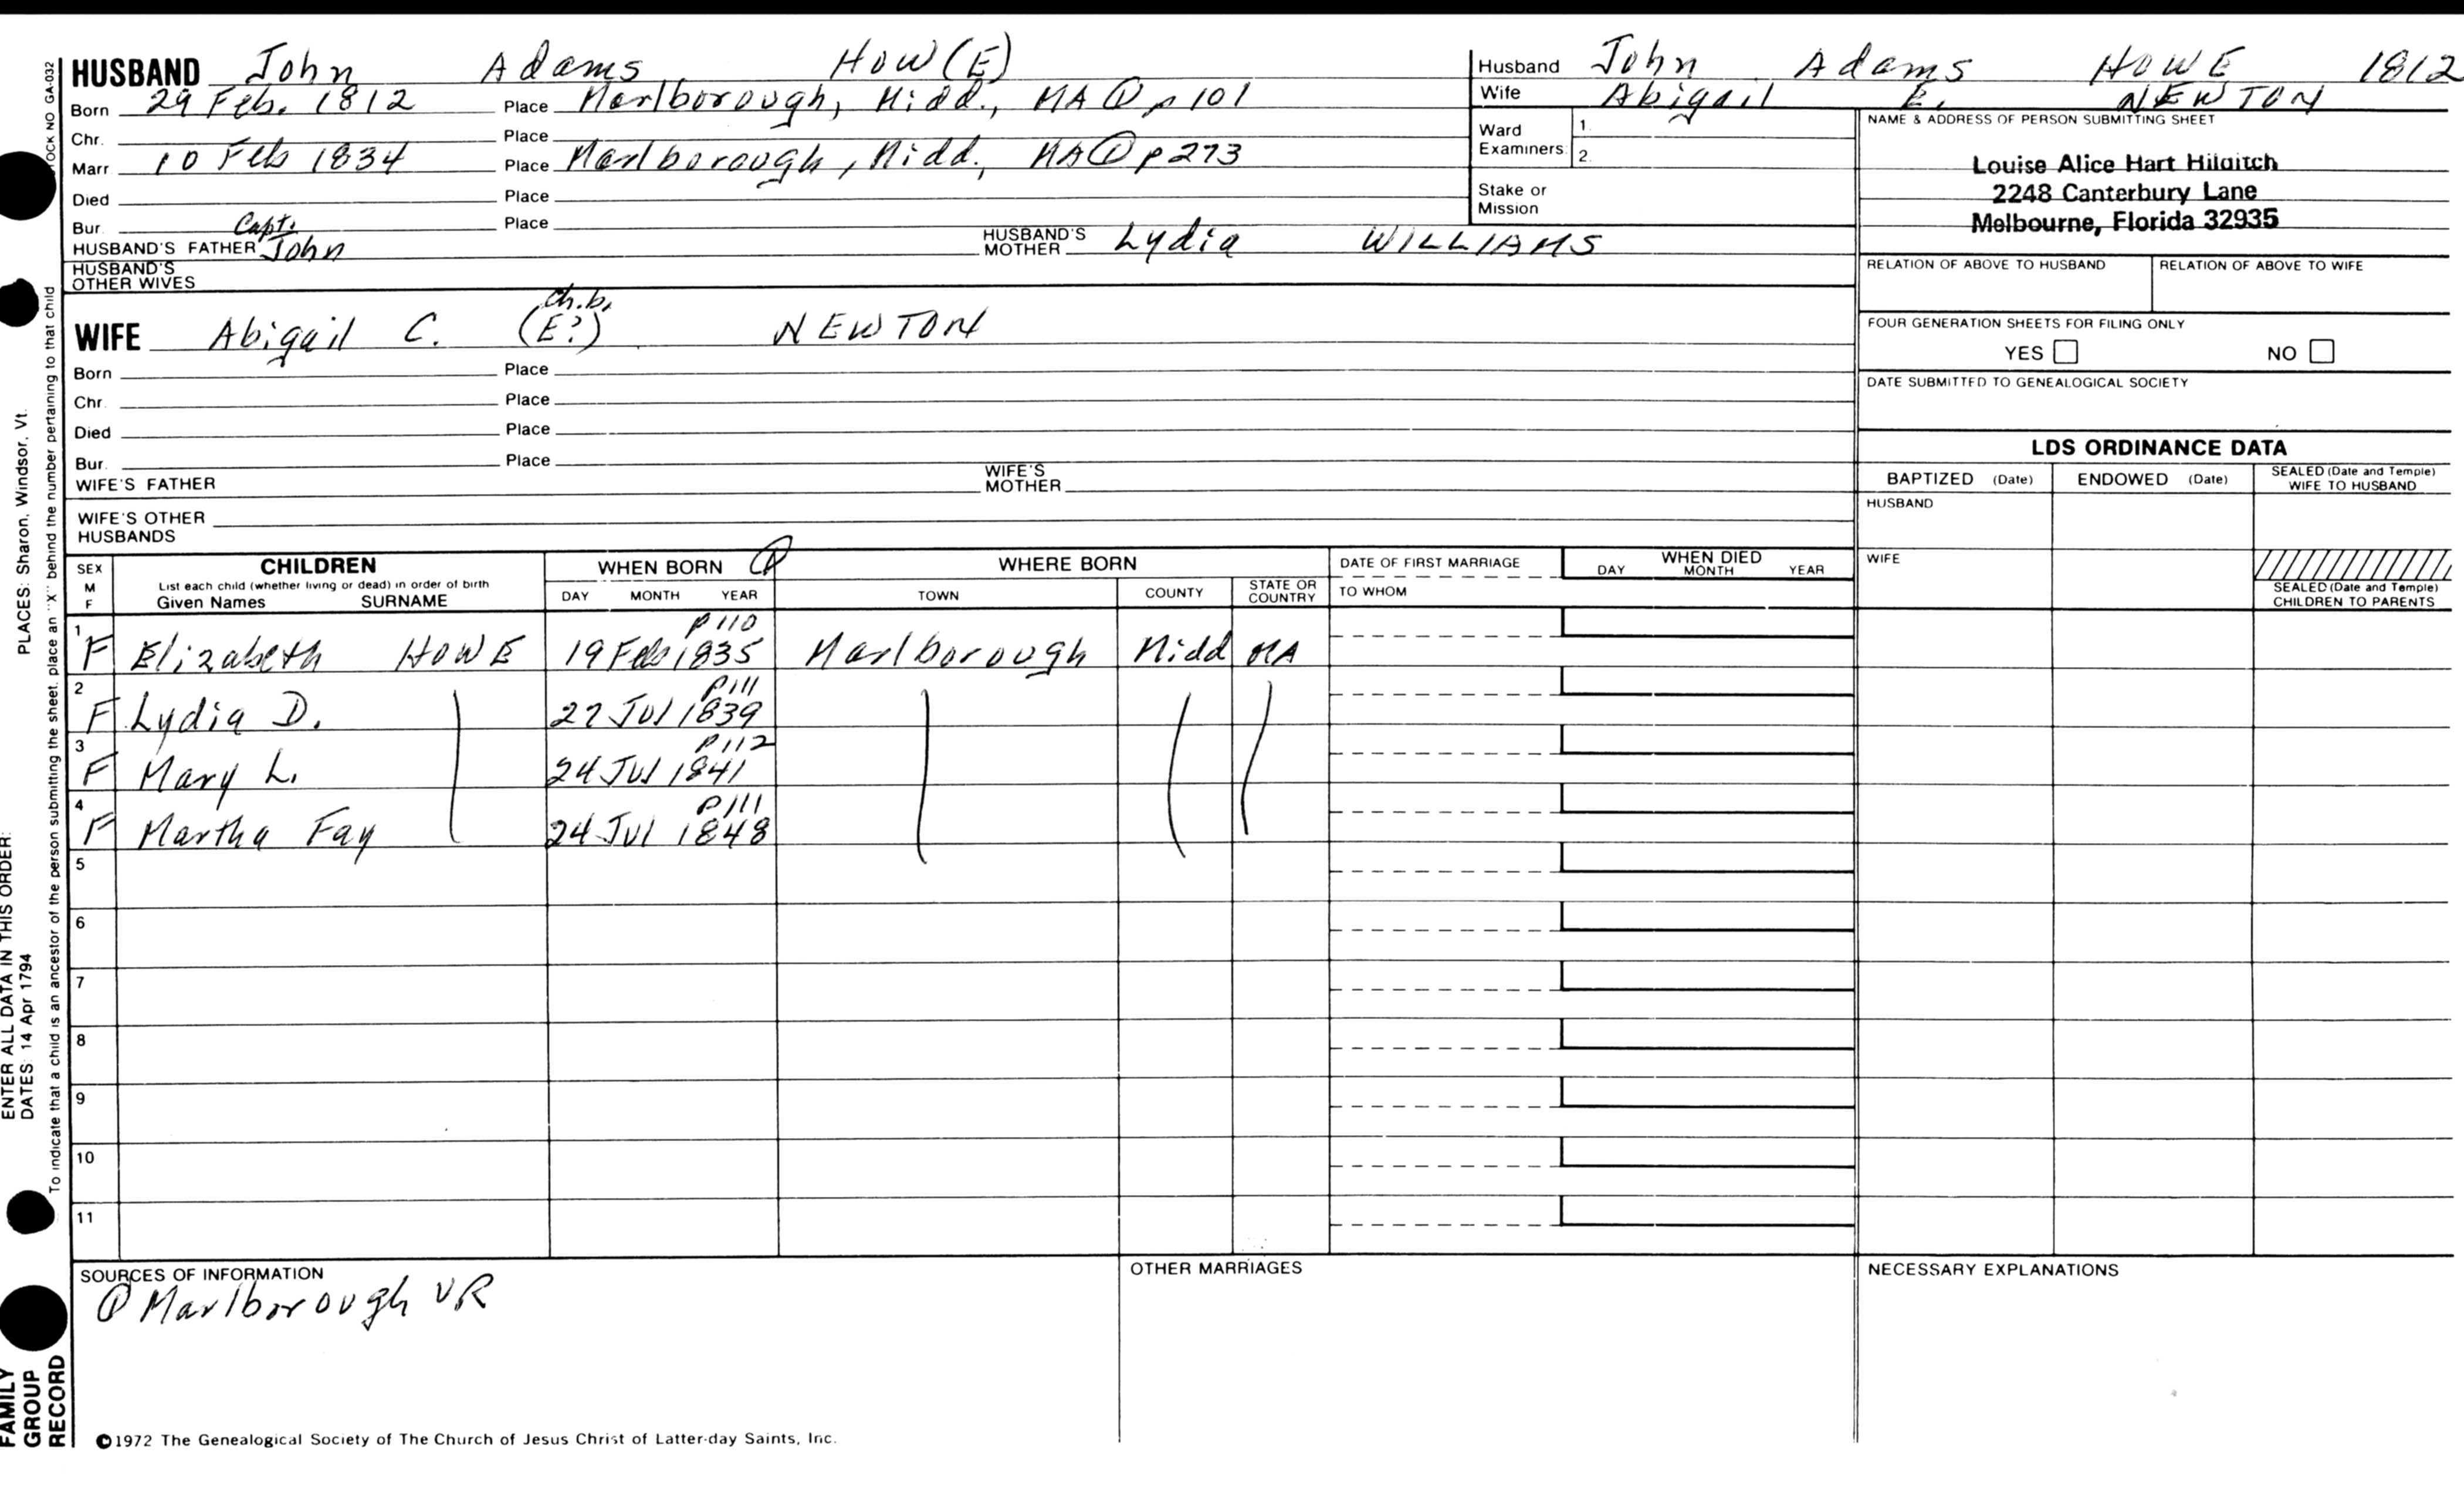 HUSBAND John Adams HOW(E)
Born 29 Feb. 1812 Place Marlborough, Midd., MA ① p 101
Chr. Place
Marr 10 Feb 1834 Place Marlborough, Midd., MA ① p 273
Died Place
Bur. Place
HUSBAND'S FATHER Capt. John HUSBAND'S MOTHER Lydia WILLIAMS
HUSBAND'S OTHER WIVES
Husband John Adams HOWE 1812
Wife Abigail E. NEWTON
Ward Examiners 1. 2.
Stake or Mission
NAME & ADDRESS OF PERSON SUBMITTING SHEET
Louise Alice Hart
2248 Canterbury Lane
Melbourne, Florida 32935
RELATION OF ABOVE TO HUSBAND RELATION OF ABOVE TO WIFE
FOUR GENERATION SHEETS FOR FILING ONLY
YES NO
DATE SUBMITTED TO GENEALOGICAL SOCIETY
ch.b.
WIFE Abigail C. (E?) NEWTON
Born Place
Chr. Place
Died Place
Bur. Place
WIFE'S FATHER WIFE'S MOTHER
WIFE'S OTHER HUSBANDS
LDS ORDINANCE DATA
BAPTIZED (Date) ENDOWED (Date) SEALED (Date and Temple) WIFE TO HUSBAND
HUSBAND
WIFE
SEALED (Date and Temple) CHILDREN TO PARENTS
SEX M F
CHILDREN
List each child (whether living or dead) in order of birth
Given Names SURNAME
WHEN BORN ①
DAY MONTH YEAR
WHERE BORN
TOWN COUNTY STATE OR COUNTRY
DATE OF FIRST MARRIAGE
TO WHOM
WHEN DIED
DAY MONTH YEAR
p 110
1 F Elizabeth HOWE 19 Feb 1835 Marlborough Midd MA
p 111
2 F Lydia D. 27 Jul 1839
p 112
3 F Mary L. 24 Jul 1841
p 111
4 F Martha Fay 24 Jul 1848
5
6
7
8
9
10
11
SOURCES OF INFORMATION
① Marlborough VR
OTHER MARRIAGES
NECESSARY EXPLANATIONS
©1972 The Genealogical Society of The Church of Jesus Christ of Latter-day Saints, Inc.
FAMILY GROUP RECORD
ENTER ALL DATA IN THIS ORDER:
DATES: 14 Apr 1794 PLACES: Sharon, Windsor, Vt.
To indicate that a child is an ancestor of the person submitting the sheet, place an "X" behind the number pertaining to that child
NO GA-032